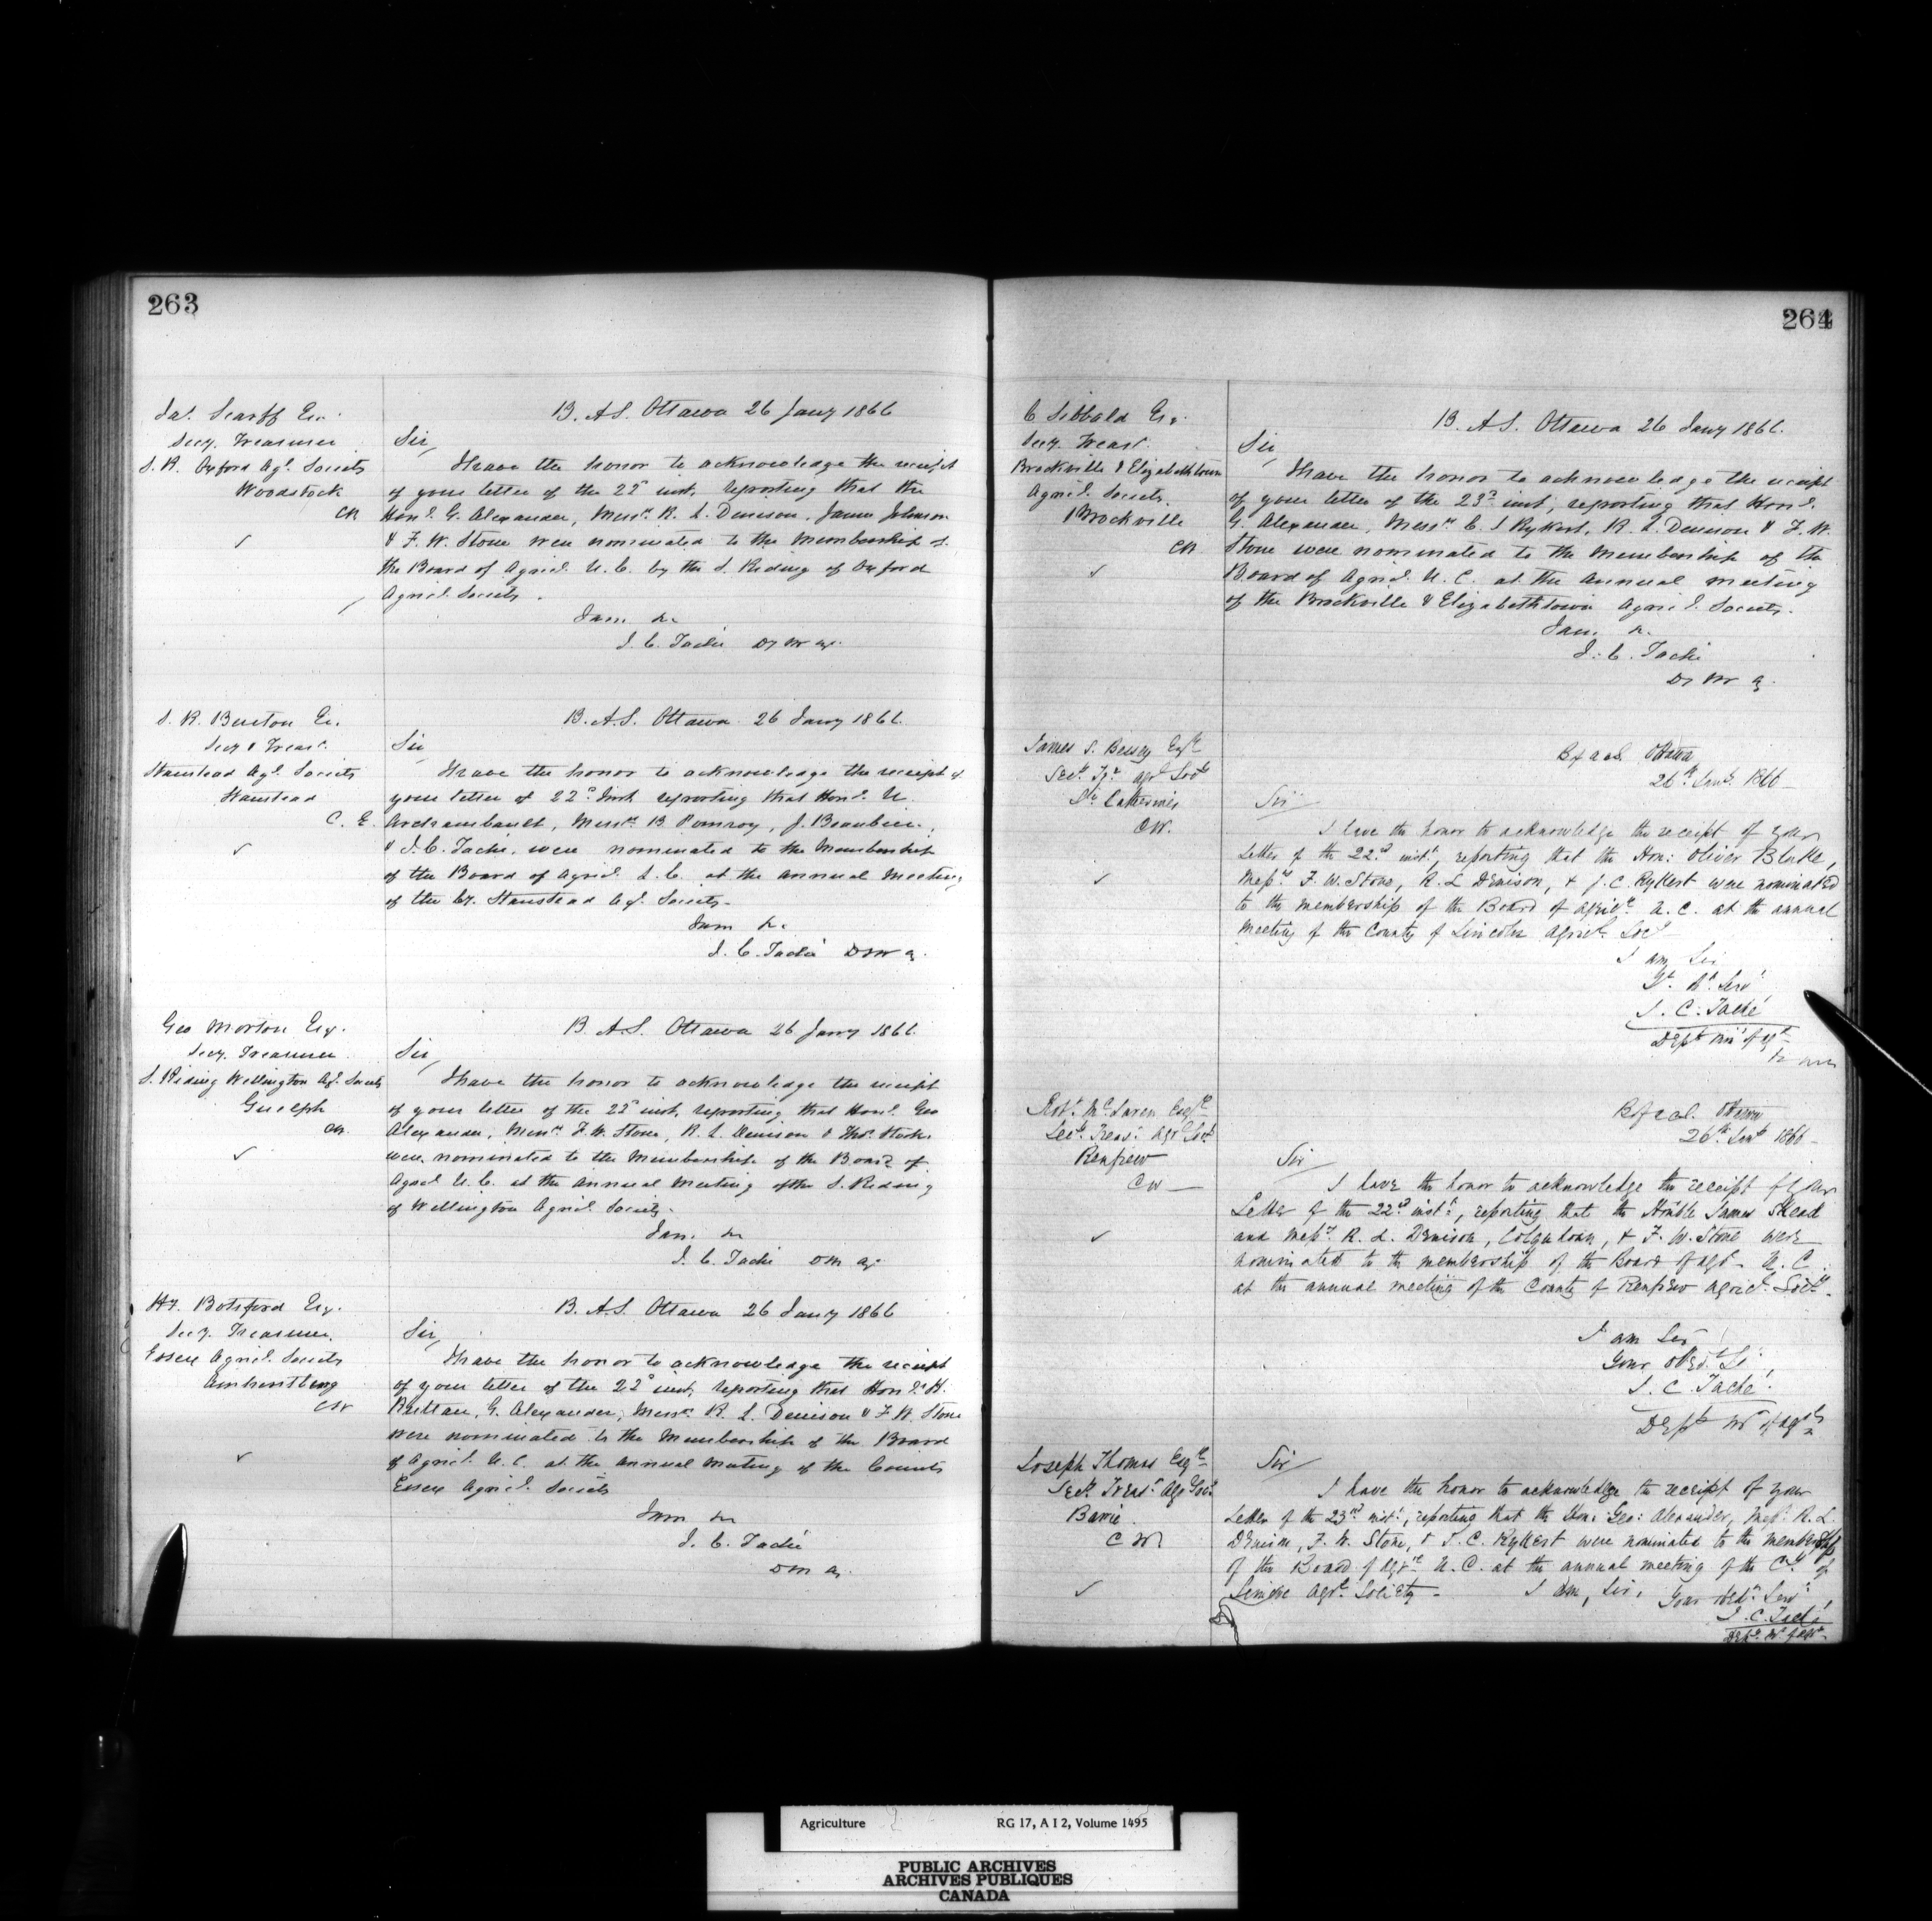 263
Jas. Scarff Esr.
Secy. Treasurer
S. R. Oxford Agl. Society
Woodstock
CW
B. A.S. Ottawa 26 Jany 1866
Sir,
I have the honor to acknowledge the receipt
of your letter of the 22d inst, reporting that the
Honl. G. Alexander, Messrs R. L. Denison, James Johnson
& F. W. Stone were nominated to the Membership of
the Board of Agricl. U. C. by the S. Riding of Oxford
Agricl. Society.
I am &c
J. C. Taché Dy M Ag.
S. R. Burton Er.
Secy & Treasr.
Stanstead Agl. Society
Stanstead
C. E.
B. A.S. Ottawa 26 Jany 1866.
Sir,
I have the honor to acknowledge the receipt of
your letter of 22d Inst reporting that Honl. U.
Archambault, Messrs B. Pomroy, J. Beaubien,
& J. C. Taché, were nominated to the Membership
of the Board of Agricl. L. C. at the Annual Meeting
of the Cy. Stanstead Agl. Society.
I am &c
J. C. Taché D M A.
Geo Morton Esq.
Secy. Treasurer
S. Riding Wellington Agl. Society
Guelph
CW.
B. A.S. Ottawa 26 Jany 1866.
Sir,
I have the honor to acknowledge the receipt
of your letter of the 22d inst, reporting that Honl. Geo
Alexander, Messrs F. W. Stone, R. L. Denison & Thos. Stock
were nominated to the Membership of the Board of
Agricl U. C. at the Annual Meeting of the S. Riding
of Wellington Agricl. Society.
I am. &c
J. C. Taché D M Ag.
Hy. Botsford Esq.
Secy. Treasurer.
Essex Agricl. Society
Amherstberg
CW
B. A.S. Ottawa 26 Jany 1866
Sir,
I have the honor to acknowledge the receipt
of your letter of the 22d inst, reporting that Honl. H.
Ruttan, G. Alexander, Messrs R. L. Denison & F. W. Stone
were nominated to the Membership of the Board
of Agricl. U. C. at the Annual Meeting of the County
Essex Agricl. Society
I am &c
J. C. Taché
D M A.
264
C Sibbald Er.
Secy. Treasr.
Brockville & Elizabethtown
Agricl. Society.
Brockville
CW
B. A.S. Ottawa 26 Jany 1866.
Sir,
I have the honor to acknowledge the receipt
of your letter of the 23d inst, reporting that Honl.
G. Alexander, Messrs C. J Rykert, R. L. Denison & F. W.
Stone were nominated to the Membership of the
Board of Agricl. U. C. at the Annual Meeting
of the Brockville & Elizabethtown Agricl. Society.
I am. &c.
J. C. Taché
Dy M A.
James S. Bessey Esqre
Secy. Tr. Agrl Socty
St. Catherines
CW.
B of A & S. Ottawa
26th Jany. 1866
Sir
I have the honor to acknowledge the receipt of your
letter of the 22nd inst., reporting that the Hon: Oliver Blake,
Messrs F. W. Stone, R. L Denison, & J. C. Rykert were nominated
to the membership of the Board of Agricre. U. C. at the annual
meeting of the County of Lincoln Agricl. Socy
I am Sir
Yr. Ot. Servt.
J. C. Taché
Depty Mnr of Agre
Robt. McLaren Esqre
Secy. Treas. Agrl Socy.
Renfrew
CW
B of A & S. Ottawa
26th Jany 1866
Sir
I have the honor to acknowledge the receipt of your
Letter of the 22nd inst., reporting that the Honble James Skead
and Messrs R. L. Denison, Colquhoun, & F. W. Stone were
nominated to the membership of the Board of Agre. U. C.
at the annual meeting of the County of Renfrew Agricl. Socty.
I am Sir
Your Obed. Se.
J. C. Taché.
Depty Mr of Agre
Joseph Thomas Esqre
Secy. Treasr. Agr Socy.
Barrie.
CW
Sir
I have the honor to acknowledge the receipt of your
Letter of the 23rd inst., reporting that the Hon: Geo: Alexander, Messrs. R. L.
Denison, F. W. Stone, & J. C. Rykert were nominated to the membership
of the Board of Agre U. C. at the annual meeting of the Cty of
Simcoe Agrl. Society
I am, Sir, Your Obt. Servt.
J. C. Taché
Depty. Mr of Agre.
Agriculture
RG 17, A I 2, Volume 1495
PUBLIC ARCHIVES
ARCHIVES PUBLIQUES
CANADA